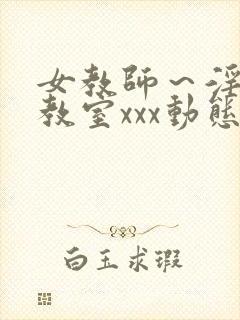 女教師～淫
教室xxx動態
白玉求瑕